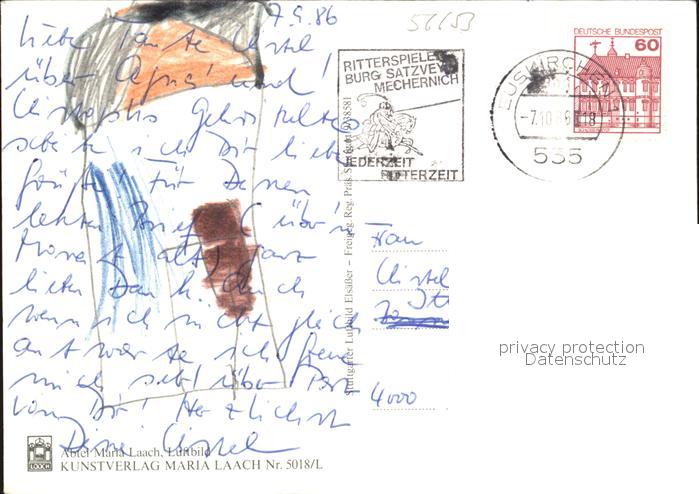 7.9.86
56/53
Liebe Tante Christel
über Agnes und
sende ich Dir liebe
Grüße! Für Deinen
letzten Brief (über 1
Monat alt) ganz
lieben Dank! Auch
wenn ich nicht gleich
antworte ich freue
mich sehr über Post
von Dir! Herzlichst
Deine Christel
RITTERSPIELE
BURG SATZVEY
MECHERNICH
JEDERZEIT
RITTERZEIT
EUSKIRCHEN
-7.10.86-18
535
DEUTSCHE BUNDESPOST
60
Frau
Christel
4000
Stuttgarter Luftbild Elsäßer – Freigeg. Reg. Präs. Stuttgart
LAACH
Abtei Maria Laach, Luftbild
KUNSTVERLAG MARIA LAACH Nr. 5018/L
privacy protection
Datenschutz